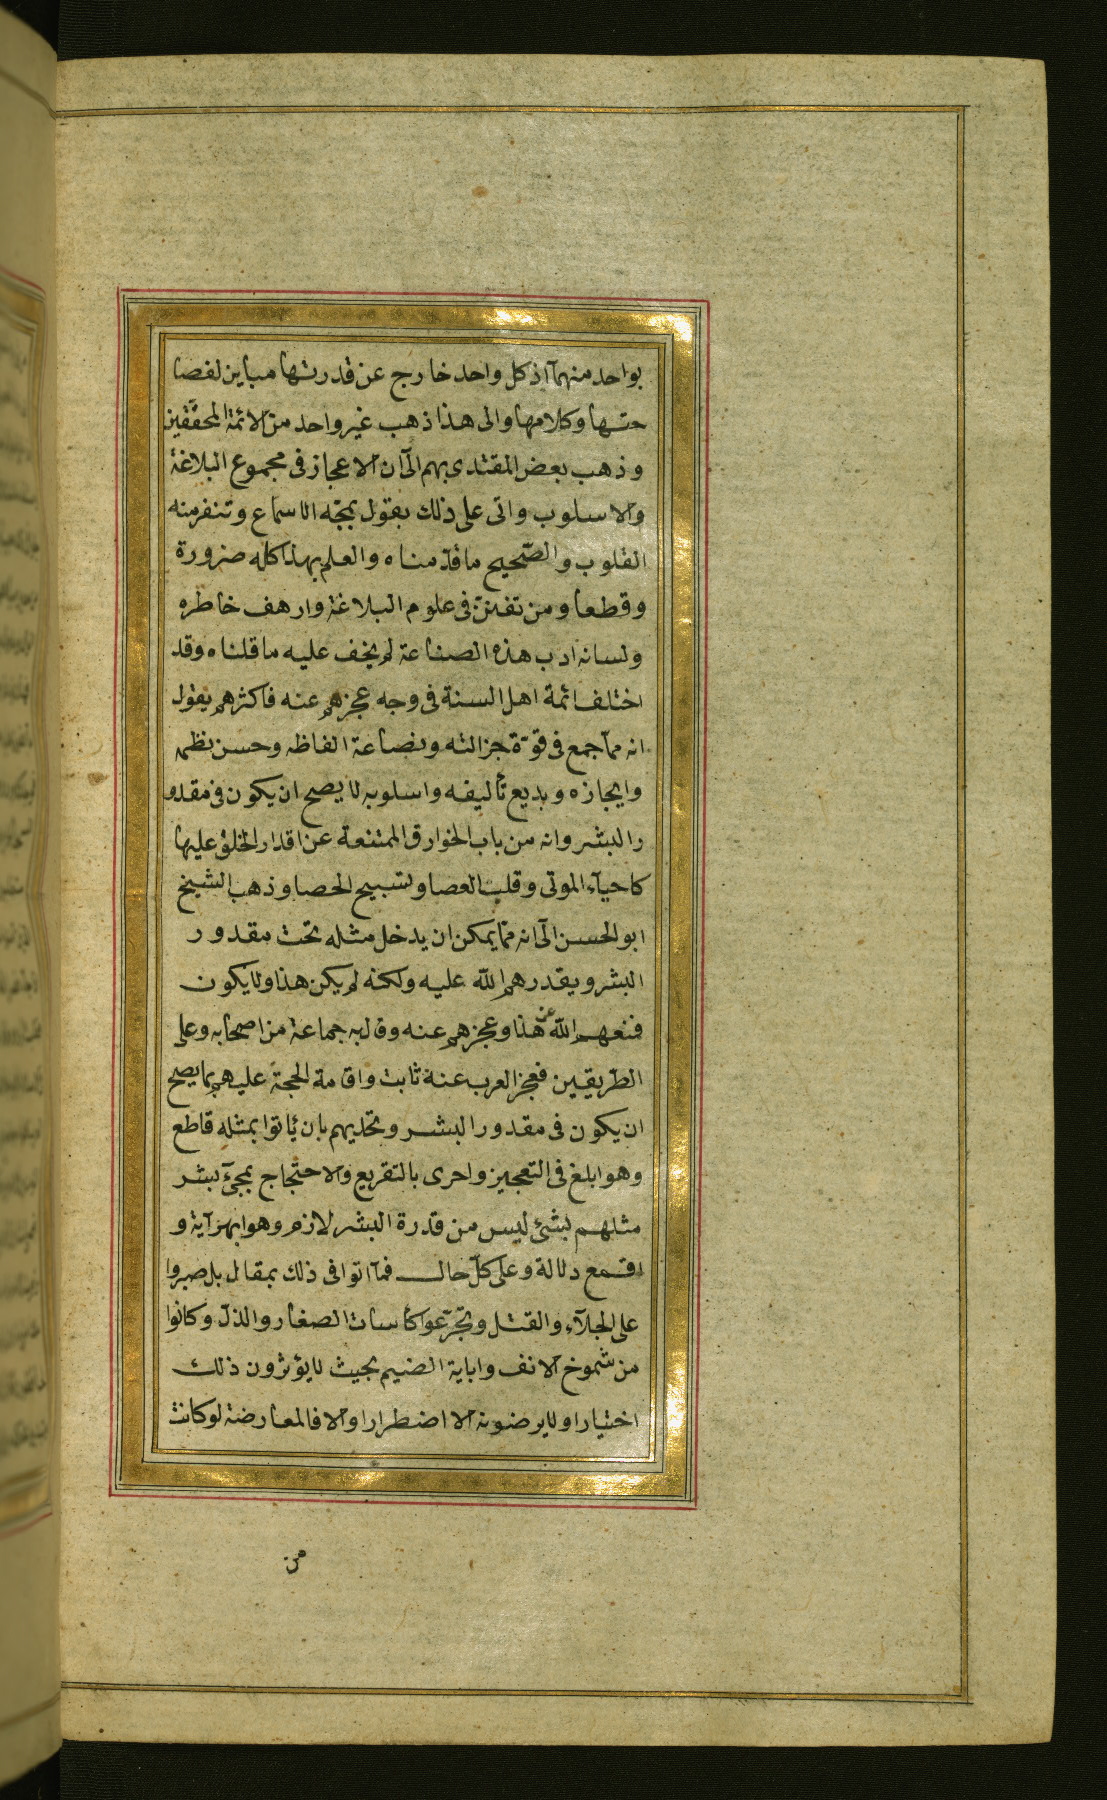 بواحد منهما اذ كل واحد خارج عن قدرتها مباين لفصا
حتها وكلامها والى هذا ذهب غير واحد من الائمة المحققين
وذهب بعض المقتدى بهم الى ان الاعجاز فى مجموع البلاغة
والاسلوب واتى على ذلك بقول تمجّه الاسماع وتنفر منه
القلوب والصّحيح ما قدّمناه والعلم بهذا كله ضرورة
وقطعا ومن تفنّن فى علوم البلاغة وارهف خاطره
ولسانه ادب هذه الصناعة لم يخف عليه ما قلناه وقد
اختلف ائمة اهل السنة فى وجه عجزهم عنه فاكثرهم يقول
انه ممّا جمع فى قوّة جزالته ونصاعة الفاظه وحسن نظمه
وايجازه وبديع تأليفه واسلوبه لا يصح ان يكون فى مقدو
ر البشر وانه من باب الخوارق الممتنعة عن اقدار الخلق عليها
كاحيآء الموتى وقلب العصا وتسبيح الحصا وذهب الشيخ
ابو الحسن الى انه ممّا يمكن ان يدخل مثله تحت مقدور
البشر ويقدرهم الله عليه ولكنه لم يكن هذا ولا يكون
فمنعهم الله عن هذا وعجزهم عنه وقال به جماعة من اصحابه وعلى
الطريقين فعجز العرب عنه ثابت واقامة الحجة عليهم بما يصح
ان يكون فى مقدور البشر وتحديهم بان يأتوا بمثله قاطع
وهو ابلغ فى التعجيز واحرى بالتقريع والاحتجاج بمجئ بشر
مثلهم بشئ ليس من قدرة البشر لازم وهو ابهر آية و
اقمع دلالة وعلى كلّ حال فمآ اتوا فى ذلك بمقال بل صبروا
على الجلآء والقتل وتجرّعوا كأسات الصغار والذلّ وكانوا
من شموخ الانف واباية الضيم بحيث لا يؤثرون ذلك
اختيارا ولا يرضونه الا اضطرارا والا فالمعارضة لو كانت
من